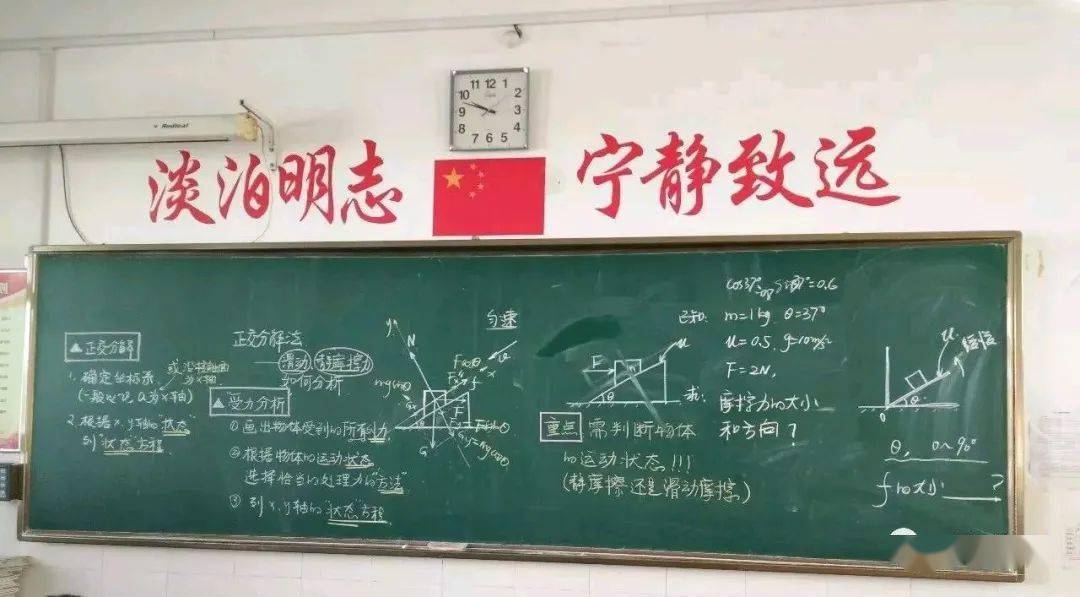 Redleaf
11 12 1
10 2
9 3
8 4
7 6 5
淡泊明志
宁静致远
▲正交分解
1. 确定坐标系
或沿接触面
为x轴
(一般以v, a为x轴)
2. 根据x, y轴的"状态"
列"状态方程"
正交分解法
滑动 静摩擦力
如何分析
▲受力分析
①画出物体受到的所有力
②根据物体的运动状态
选择恰当的处理力的"方法"
③列x, y轴的"状态"方程
匀速
y
N
Fcosθ
x
v
f
mgsinθ
Gx
θ
F
Fsinθ
G
Gy=mgcosθ
F
m
θ
μ
重点 需判断物体
的运动状态!!!
(静摩擦还是滑动摩擦)
cos37°=0.8 sin37°=0.6
已知: m=1kg θ=37°
μ=0.5, g=10m/s²
F=2N,
求: 摩擦力的大小
和方向?
μ
缓慢
0
θ
θ, 0~90°
f的大小 ?